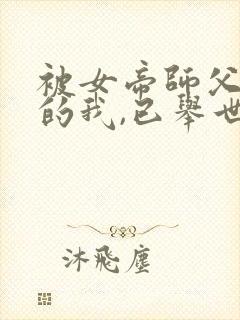 被女帝師父
的我,已舉世
沐飛塵